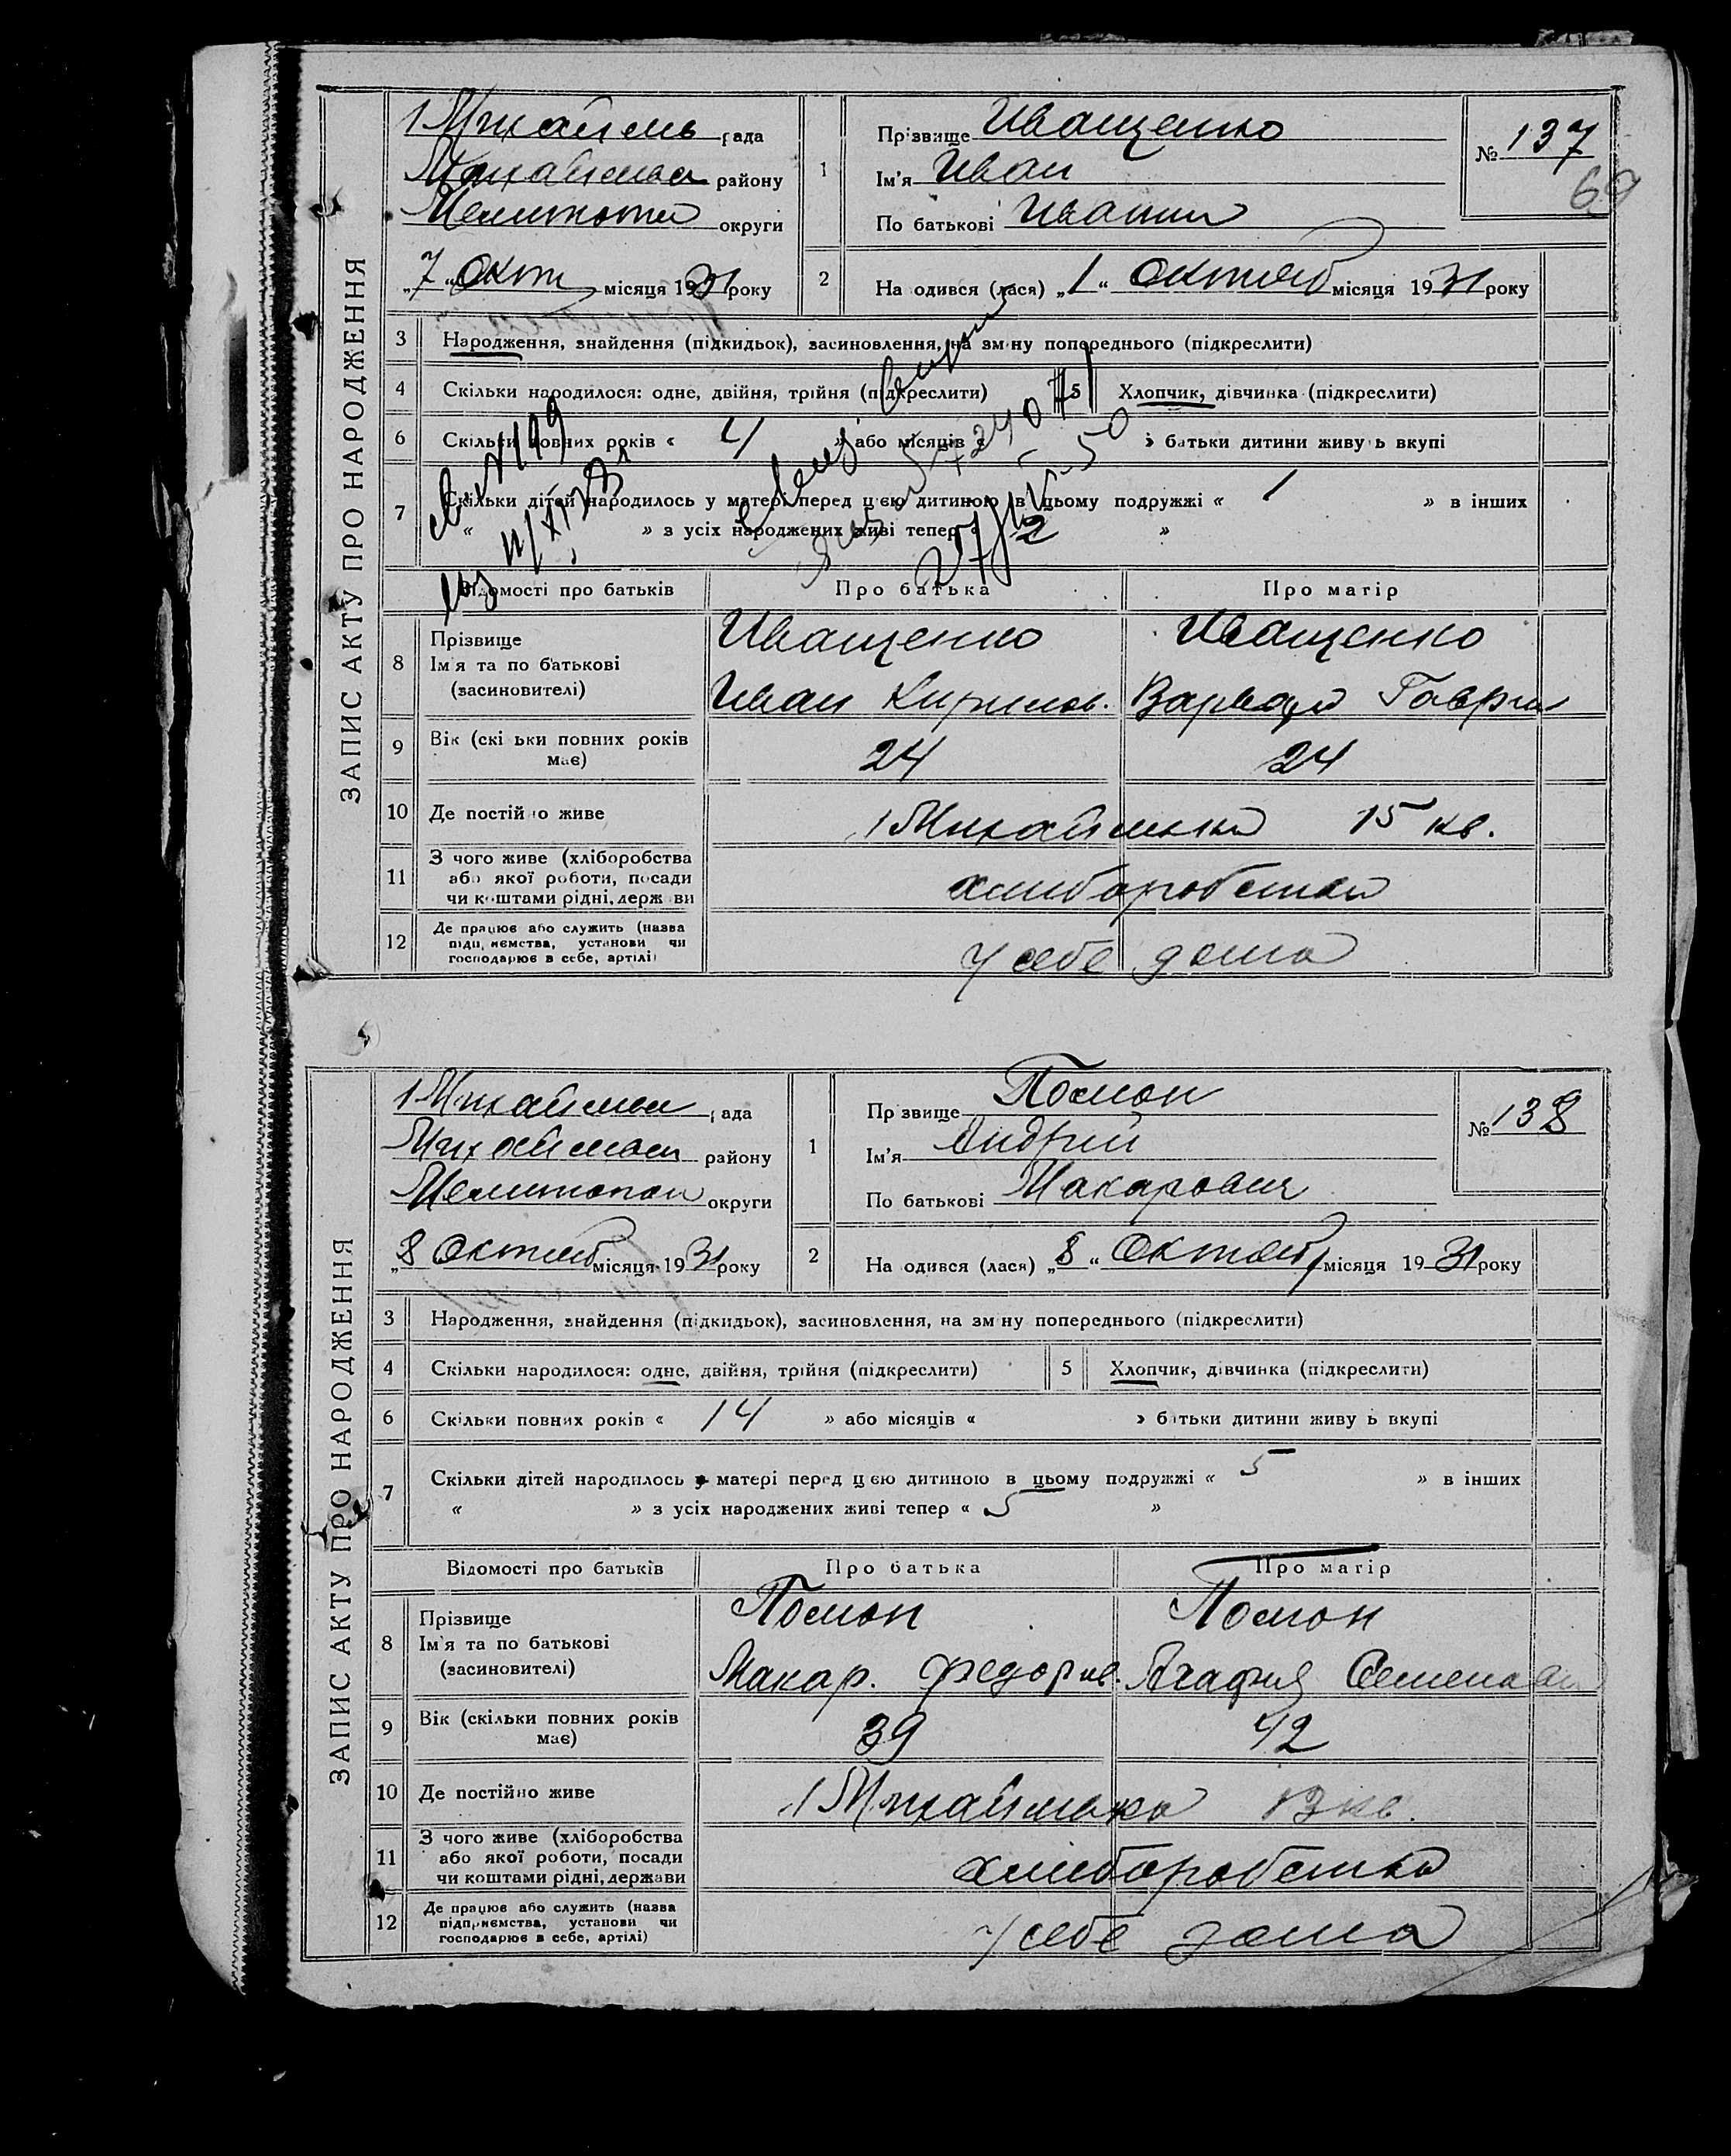 ЗАПИС АКТУ ПРО НАРОДЖЕННЯ
рада
району
округи
„7“ Окт місяця 1931 року
1
Прізвище Иващенко
Ім'я Иван
По батькові
№ 137
69
2
На одився (лася) „1“ Октяб місяця 1931 року
3
Народження, знайдення (підкидьок), засиновлення, на зміну попереднього (підкреслити)
4
Скільки народилося: одне, двійня, трійня (підкреслити)
5
Хлопчик, дівчинка (підкреслити)
6
Скільки повних років « 4 » або місяців « » батьки дитини живуть вкупі
7
Скільки дітей народилось у матері перед цією дитиною в цьому подружжі « 1 » в інших
« » з усіх народжених живі тепер « 2 »
Відомості про батьків
Про батька
Про матір
8
Прізвище
Ім'я та по батькові
(засиновителі)
Иващенко
Иван Кирилов.
Иващенко
Варвара Гаврил
9
Вік (скільки повних років
має)
24
24
10
Де постійно живе
1 Михайловка 15 кв.
11
З чого живе (хліборобства
або якої роботи, посади
чи коштами рідні, держави
хлиборобство
12
Де працює або служить (назва
підприємства, установи чи
господарює в себе, артілі)
у себе дома
ЗАПИС АКТУ ПРО НАРОДЖЕННЯ
рада
району
округи
„8 Октяб місяця 1931 року
1
Прізвище
Ім'я Андрий
По батькові Макарович
№ 138
2
На одився (лася) „8“ Октяб місяця 1931 року
3
Народження, знайдення (підкидьок), засиновлення, на зміну попереднього (підкреслити)
4
Скільки народилося: одне, двійня, трійня (підкреслити)
5
Хлопчик, дівчинка (підкреслити)
6
Скільки повних років « 14 » або місяців « » батьки дитини живуть вкупі
7
Скільки дітей народилось у матері перед цією дитиною в цьому подружжі « 5 » в інших
« » з усіх народжених живі тепер « 5 »
Відомості про батьків
Про батька
Про матір
8
Прізвище
Ім'я та по батькові
(засиновителі)
Макар. Федоров.
Агафия
9
Вік (скільки повних років
має)
39
42
10
Де постійно живе
1 Михайловка 13 кв.
11
З чого живе (хліборобства
або якої роботи, посади
чи коштами рідні, держави
хлиборобство
12
Де працює або служить (назва
підприємства, установи чи
господарює в себе, артілі)
у себе дома